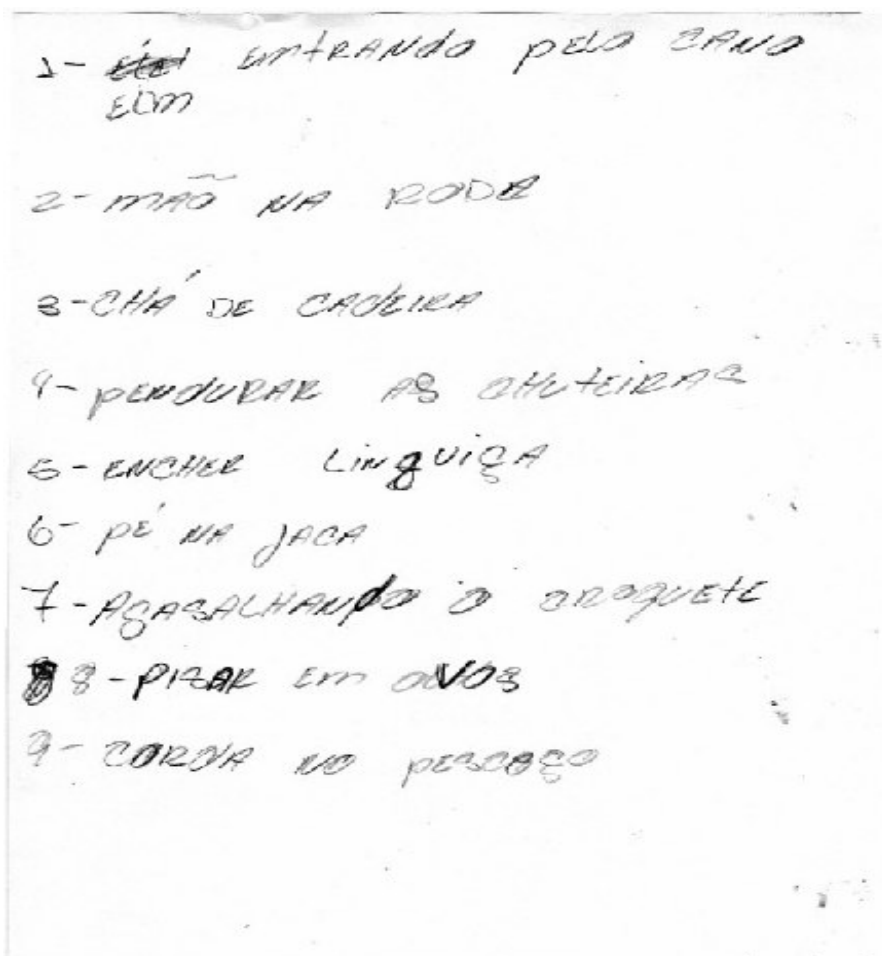 1- entrando pelo cano
2- mão na roda
3- CHÁ DE CADEIRA
4- pendurar as chuteiras
5- encher linguiça
6- pé na jaca
7- Agasalhando o croquete
8- pisar em ovos
9- corda no pescoço